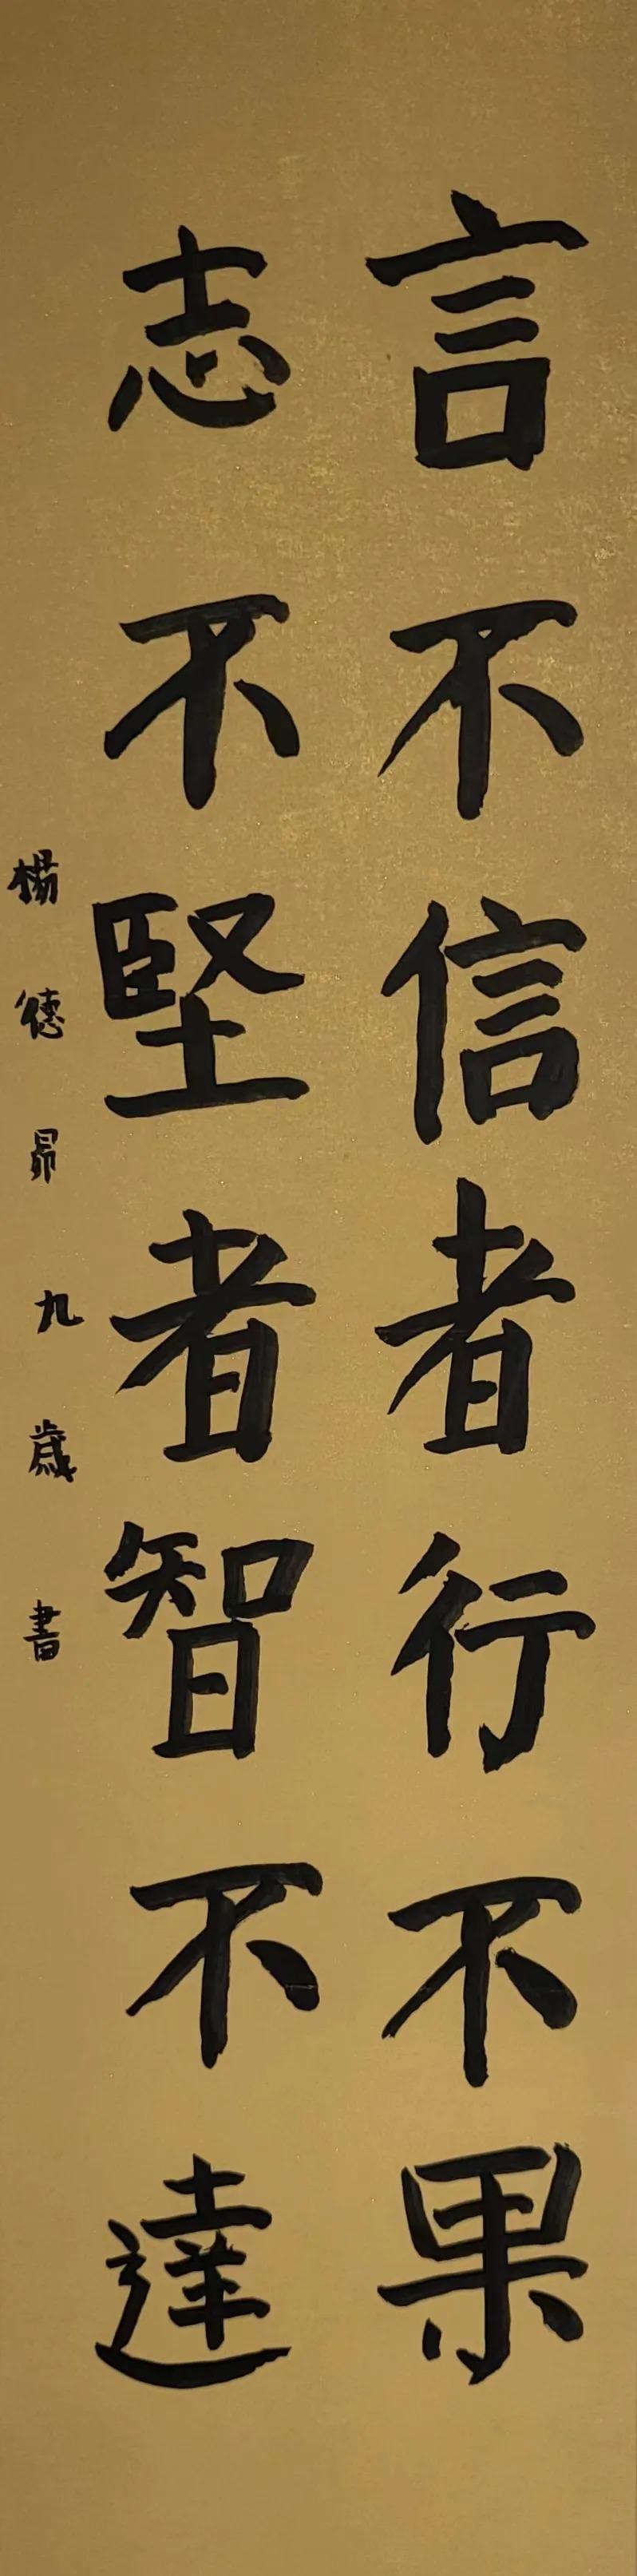 言不信者行不果
志不堅者智不達
楊德昴九歲書